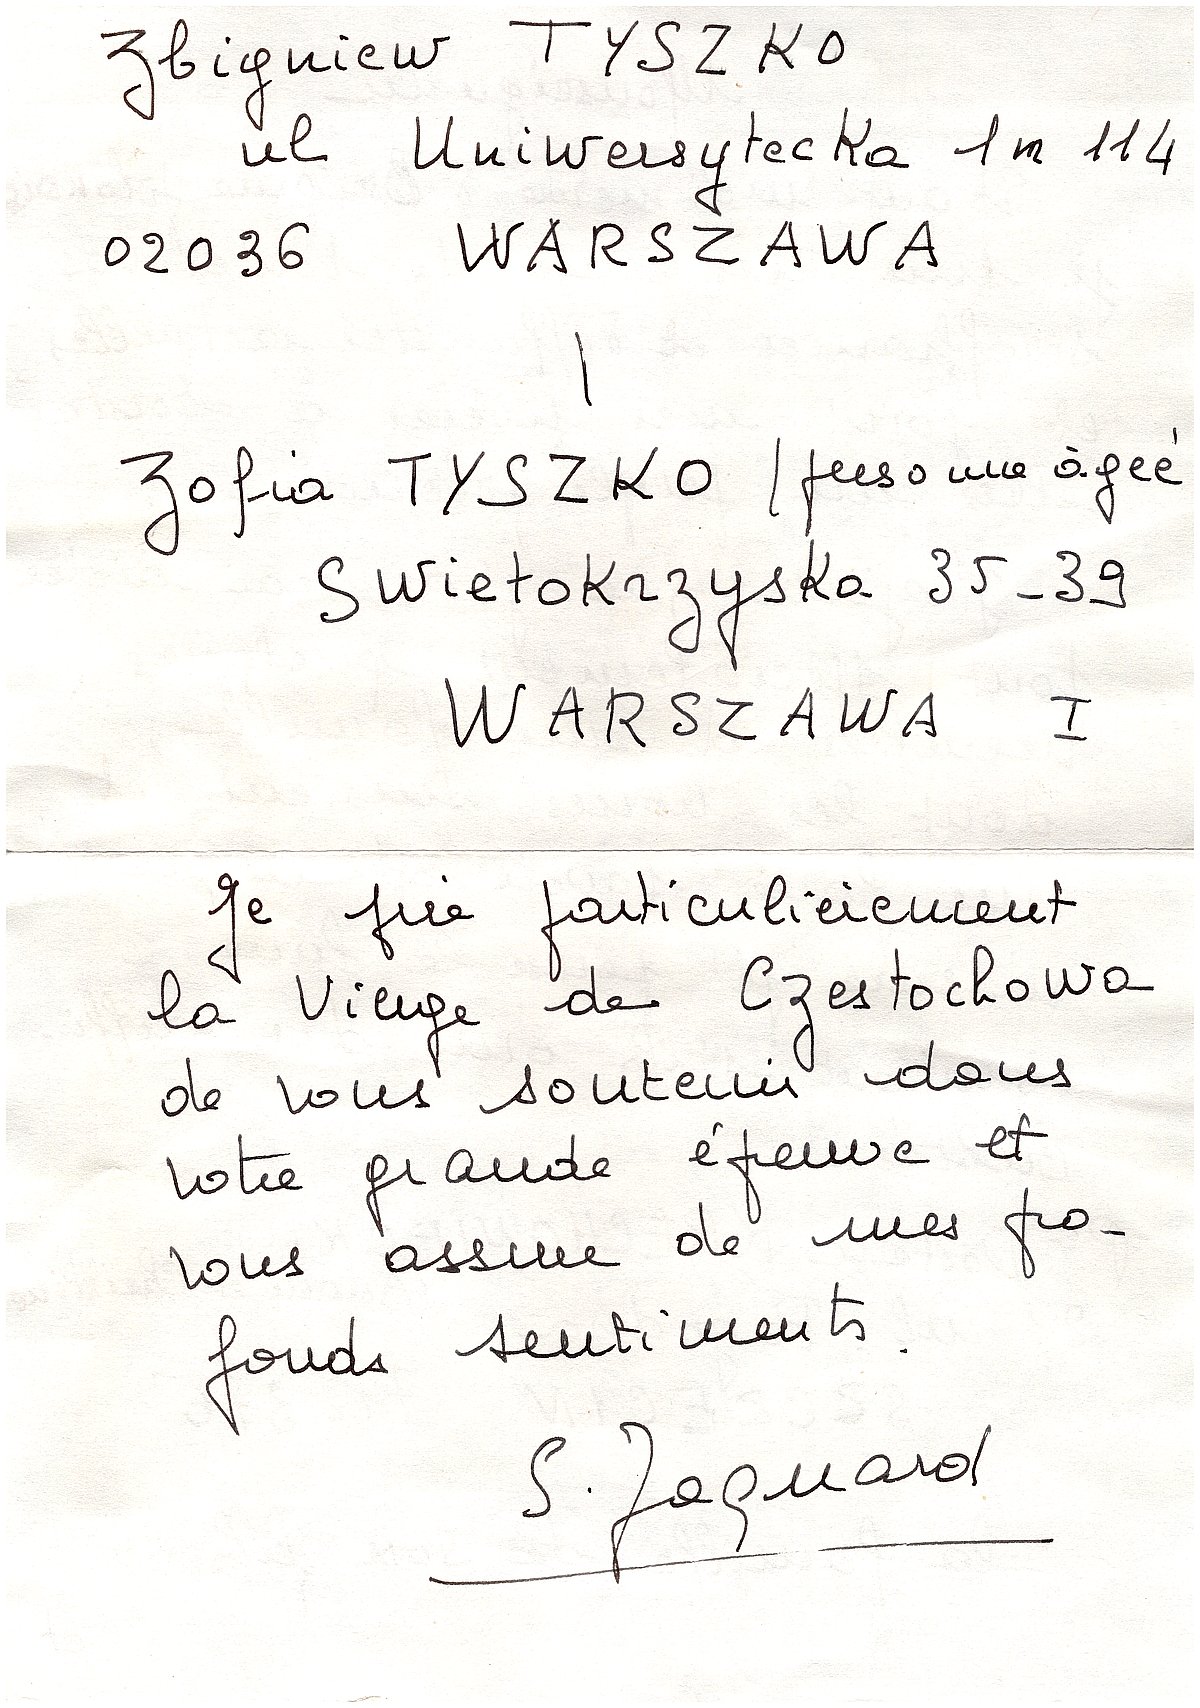 Zbigniew TYSZKO
ul Uniwersytecka 1 m 114
02036 WARSZAWA
Zofia TYSZKO / personne âgeé
Swietokrzyska 35-39
WARSZAWA I
Je prie particulièrement
la Vierge de Czestochowa
de vous soutenir dans
votre grande épreuve et
vous assure de mes pro-
fonds sentiments.
S. Jaquard